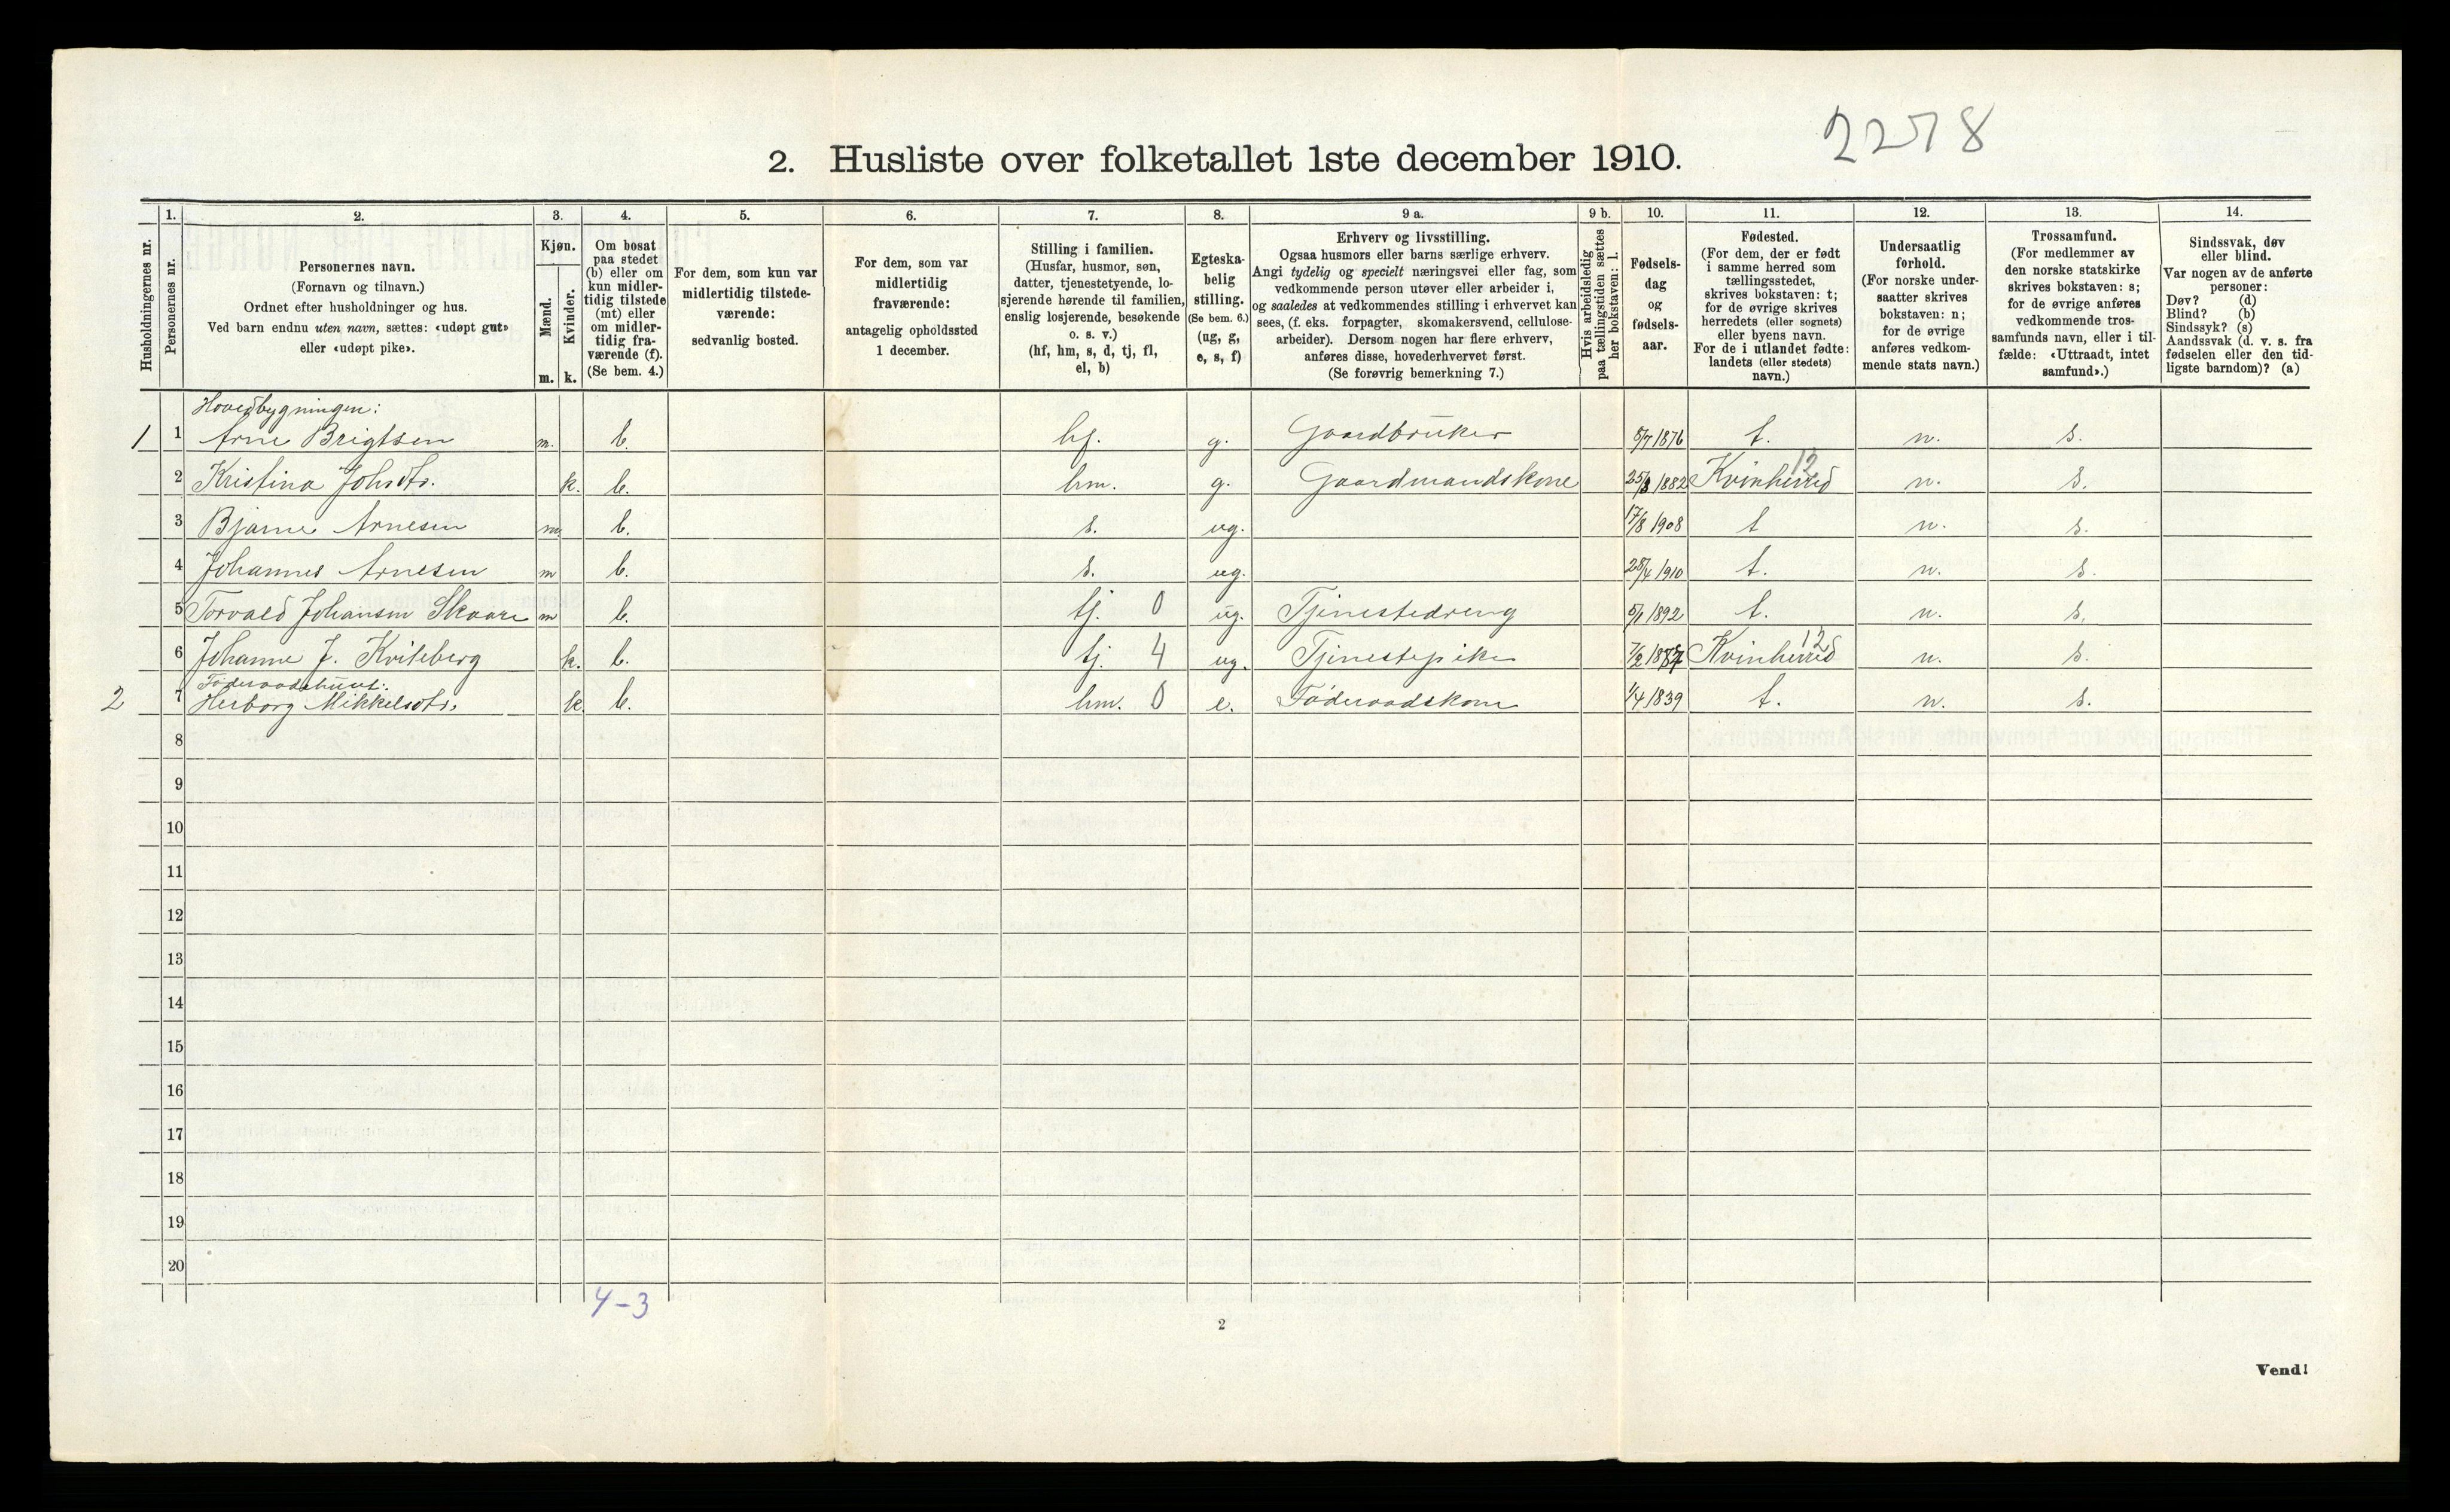 2278
2. Husliste over folketallet 1ste december 1910.
Husholdningernes nr.
1.
Personernes nr.
2.
Personernes navn.
(Fornavn og tilnavn.)
Ordnet efter husholdninger og hus.
Ved barn endnu uten navn, sættes: «udøpt gut»
eller «udøpt pike».
3.
Kjøn.
Mænd.
Kvinder.
m. k.
4.
Om bosat
paa stedet
(b) eller om
kun midler-
tidig tilstede
(mt) eller
om midler-
tidig fra-
værende (f).
(Se bem. 4.)
5.
For dem, som kun var
midlertidig tilstede-
værende:
sedvanlig bosted.
6.
For dem, som var
midlertidig
fraværende:
antagelig opholdssted
1 december.
7.
Stilling i familien.
(Husfar, husmor, søn,
datter, tjenestetyende, lo-
sjerende hørende til familien,
enslig losjerende, besøkende
o. s. v.)
(hf, hm, s, d, tj, fl,
el, b)
8.
Egteska-
belig
stilling.
(Se bem. 6.)
(ug, g,
e, s, f)
9 a.
Erhverv og livsstilling.
Ogsaa husmors eller barns særlige erhverv.
Angi tydelig og specielt næringsvei eller fag, som
vedkommende person utøver eller arbeider i,
og saaledes at vedkommendes stilling i erhvervet kan
sees, (f. eks. forpagter, skomakersvend, cellulose-
arbeider). Dersom nogen har flere erhverv,
anføres disse, hovederhvervet først.
(Se forøvrig bemerkning 7.)
9 b.
Hvis arbeidsledig
paa tællingstiden sættes
her bokstaven: l.
10.
Fødsels-
dag
og
fødsels-
aar.
11.
Fødested.
(For dem, der er født
i samme herred som
tællingsstedet,
skrives bokstaven: t;
for de øvrige skrives
herredets (eller sognets)
eller byens navn.
For de i utlandet fødte:
landets (eller stedets)
navn.)
12.
Undersaatlig
forhold.
(For norske under-
saatter skrives
bokstaven: n;
for de øvrige
anføres vedkom-
mende stats navn.)
13.
Trossamfund.
(For medlemmer av
den norske statskirke
skrives bokstaven: s;
for de øvrige anføres
vedkommende tros-
samfunds navn, eller i til-
fælde: «Uttraadt, intet
samfund».)
14.
Sindssvak, døv
eller blind.
Var nogen av de anførte
personer:
Døv? (d)
Blind? (b)
Sindssyk? (s)
Aandssvak (d. v. s. fra
fødselen eller den tid-
ligste barndom)? (a)
Hovedbygningen:
1 1 Arne Brigtsen m. b. hf. g. Gaardbruker 5/7 1876 t. n. s.
2 Kristina Johsdtr. k. b. hm. g. Gaardmandskone 25/3 1882 Kvinherred 12 n. s.
3 Bjarne Arnesen m. b. s. ug. 17/8 1908 t n. s.
4 Johannes Arnesen m b. s. ug. 28/4 1910 t. n. s.
5 Torvald Johansen Skaare m b. tj. 0 ug. Tjenestedreng 5/1 1892 t. n. s.
6 Johanne J. Kviteberg k. b. tj. 4 ug. Tjenestepike 7/2 Kvinherred 12 n. s.
Föderaadshuset:
2 7 Herborg Mikkelsdtr. k. b. hm. 0 e. Föderaadskone 1/4 1839 t. n. s.
8
9
10
11
12
13
14
15
16
17
18
19
20
4-3
2
Vend!